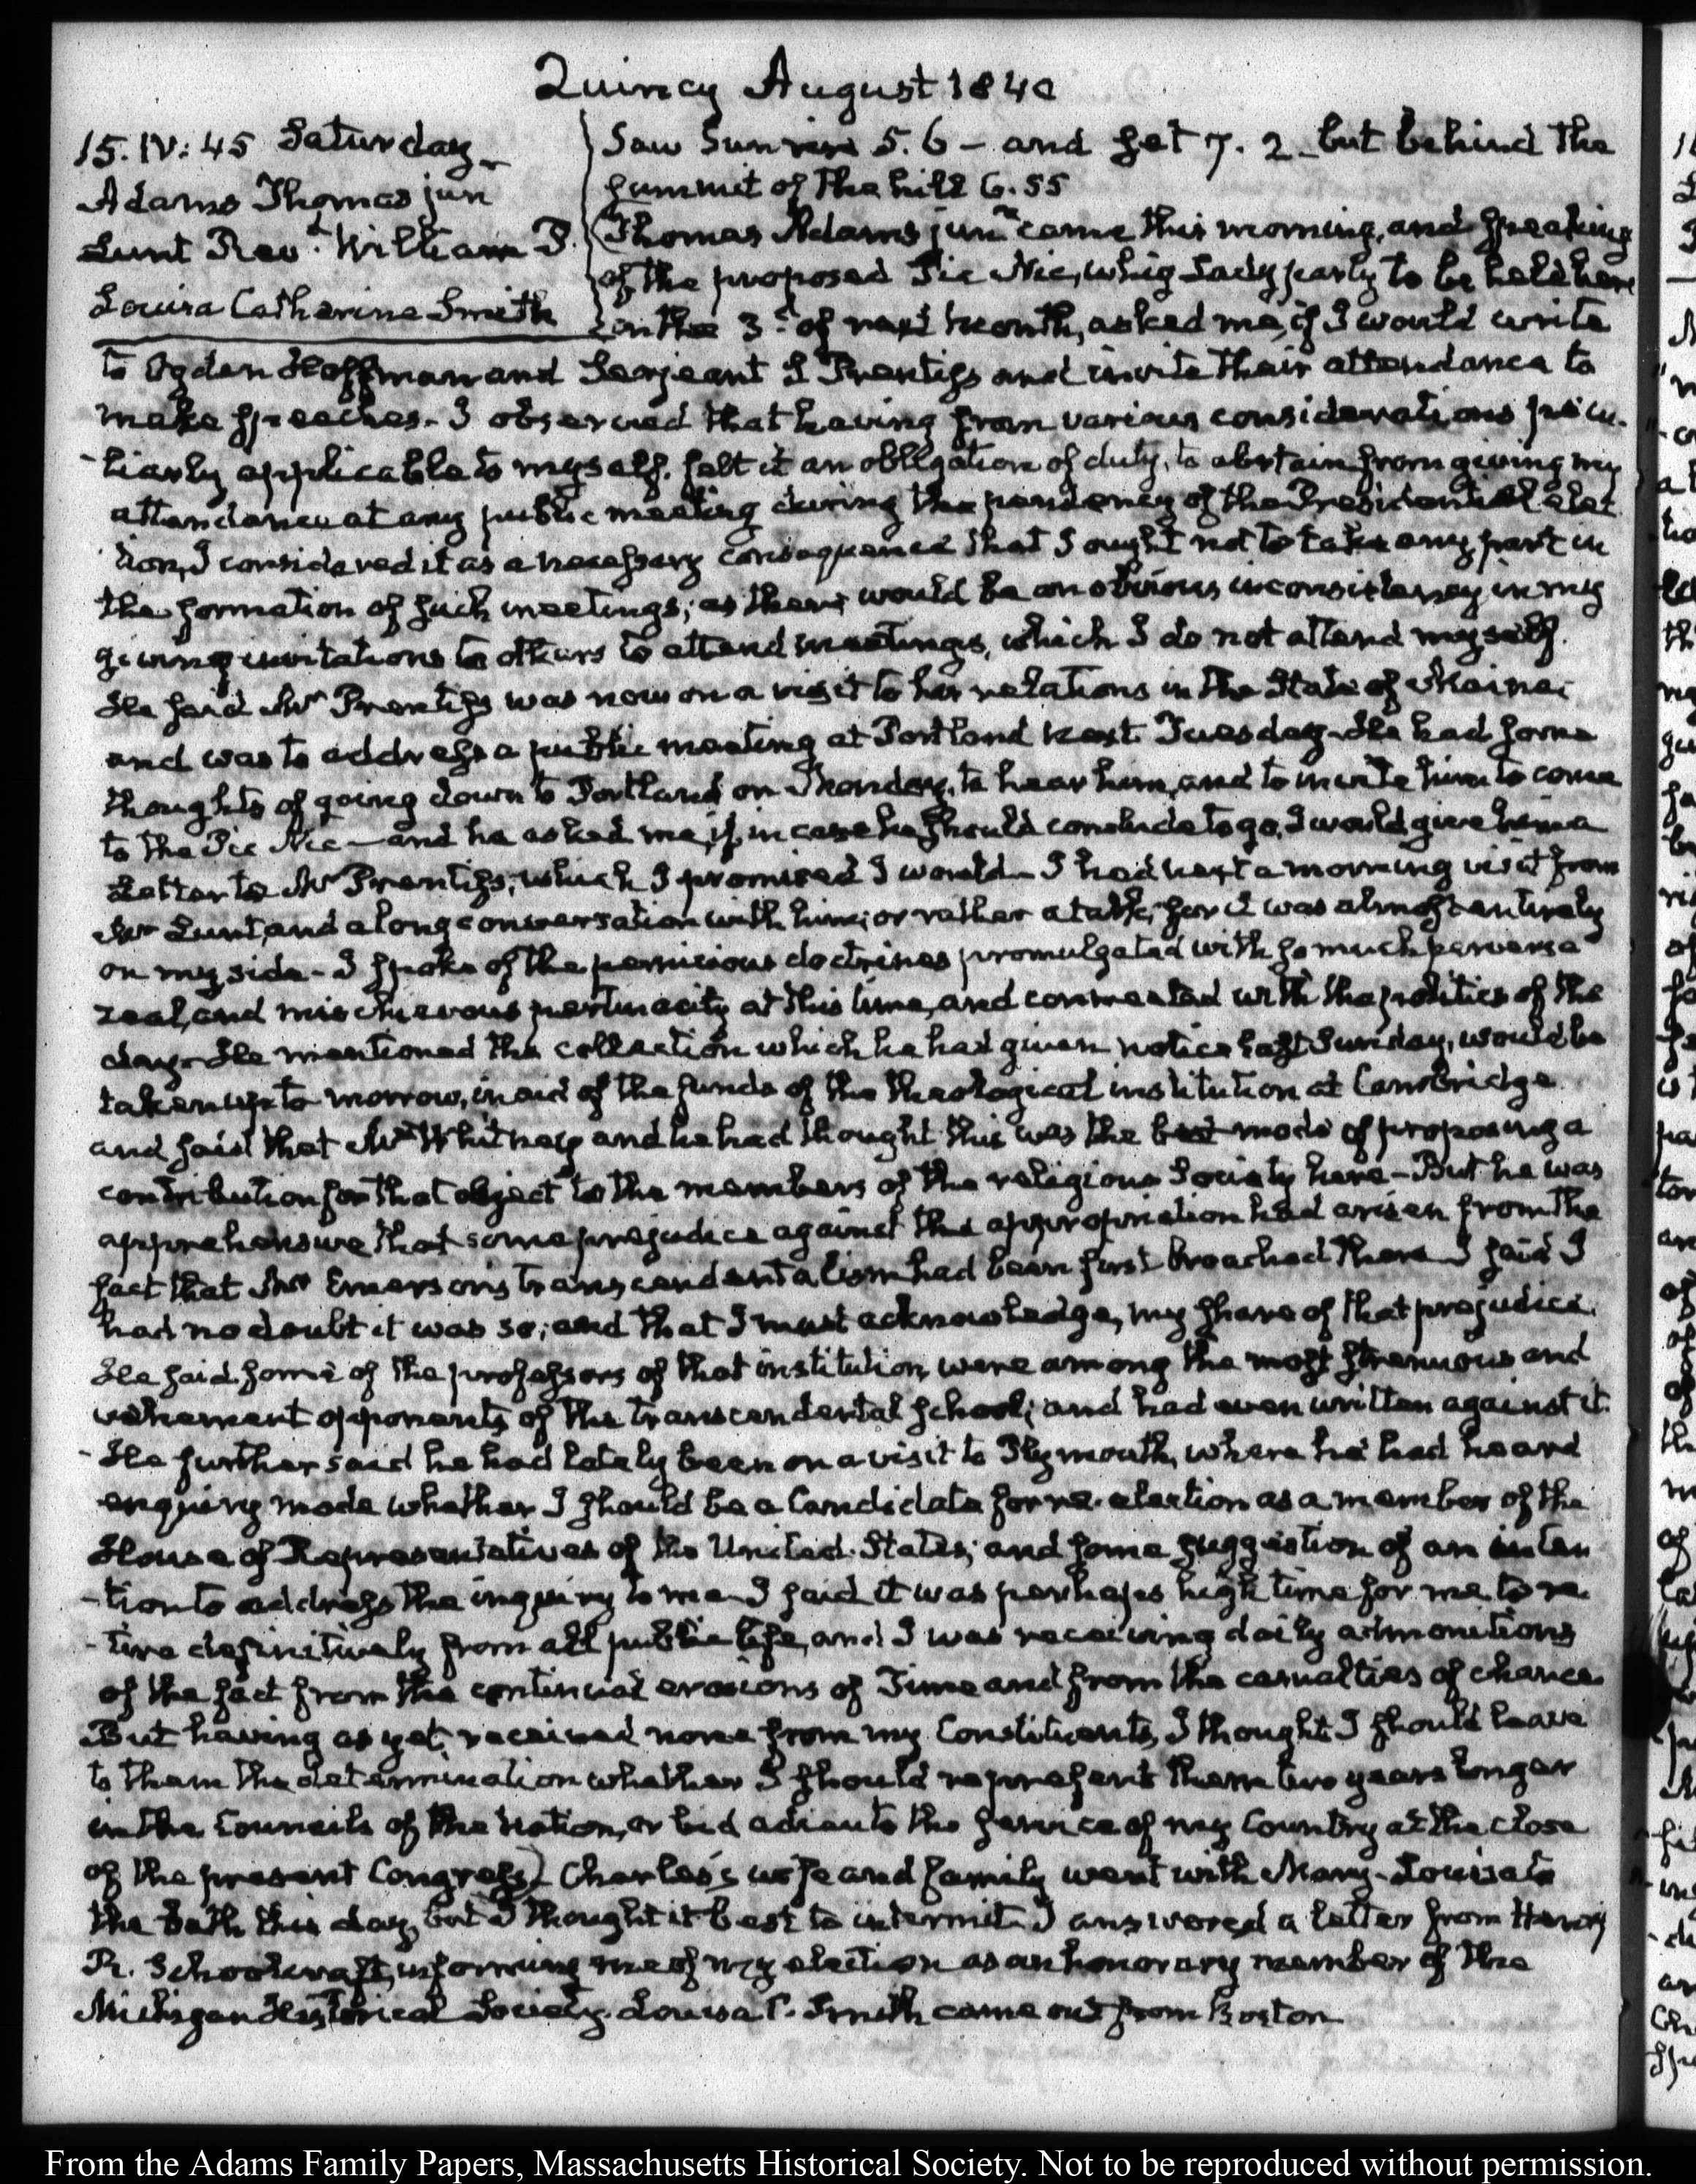 Quincy August 1840
15. IV: 45 Saturday
Adams Thomas jun
Lunt Revd. William P.
Louisa Catherine Smith
Saw Sun rise 5. 6 - and set 7. 2 - but behind the
summit of the hill 6. 55
Thomas Adams junr. came this morning, and speaking
of the proposed Pic Nic, whig Lady party to be held here
on the 3d. of next month, asked me, if I would write
to Ogden Hoffman and Serjeant S Prentiss and invite their attendance to
make speeches - I observed that having from various considerations pecu-
-liarly applicable to myself, felt it an obligation of duty, to abstain from giving my
attendance at any public meeting during the pendency of the Presidential elec
tion, I considered it as a necessary consequence that I ought not to take any part in
the formation of such meetings; as there would be an obvious inconsistency in my
giving invitations to others to attend meetings, which I do not attend myself.
He said Mr Prentiss was now on a visit to his relations in the State of Maine;
and was to address a public meeting at Portland next Tuesday - He had some
thoughts of going down to Portland on Monday, to hear him, and to invite him to come
to the Pic Nic - and he asked me, if, in case he should conclude to go, I would give him a
Letter to Mr Prentiss, which I promised I would - I had next a morning visit from
Mr Lunt, and a long conversation with him; or rather a talk, for it was almost entirely
on my side - I spoke of the pernicious doctrines promulgated with so much perverse
zeal, and mischievous pertinacity at this time, and connected with the politics of the
day - He mentioned the collection which he had given notice last Sunday, would be
taken up to morrow, in aid of the funds of the theological institution at Cambridge
and said that Mr Whitney and he had thought this was the best mode of proposing a
contribution for that object to the members of the religious Society here - But he was
apprehensive that some prejudice against the appropriation had arisen from the
fact that Mr Emerson's transcendentalism had been first broached there - I said I
had no doubt it was so; and that I must acknowledge, my share of that prejudice.
He said some of the professors of that institution, were among the most strenuous and
vehement opponents of the transcendental school; and had even written against it.
- He further said he had lately been on a visit to Plymouth, where he had heard
enquiry made whether I should be a Candidate for re-election as a member of the
House of Representatives of the United States; and some suggestion of an inten
-tion to address the inquiry to me - I said it was perhaps high time for me to re
-tire definitively from all public life, and I was receiving daily admonitions
of the fact from the continual erosions of Time and from the casualties of chance.
But having as yet received none from my Constituents, I thought I should leave
to them the determination whether I should represent them two years longer
in the Councils of the Nation, or bid adieu to the service of my Country at the close
of the present Congress) Charles's wife and family went with Mary-Louisa to
the bath this day, but I thought it best to intermit. I answered a letter from Henry
R. Schoolcraft, informing me of my election as an honorary member of the
Michigan Historical Society. Louisa C. Smith came out from Boston
From the Adams Family Papers, Massachusetts Historical Society. Not to be reproduced without permission.